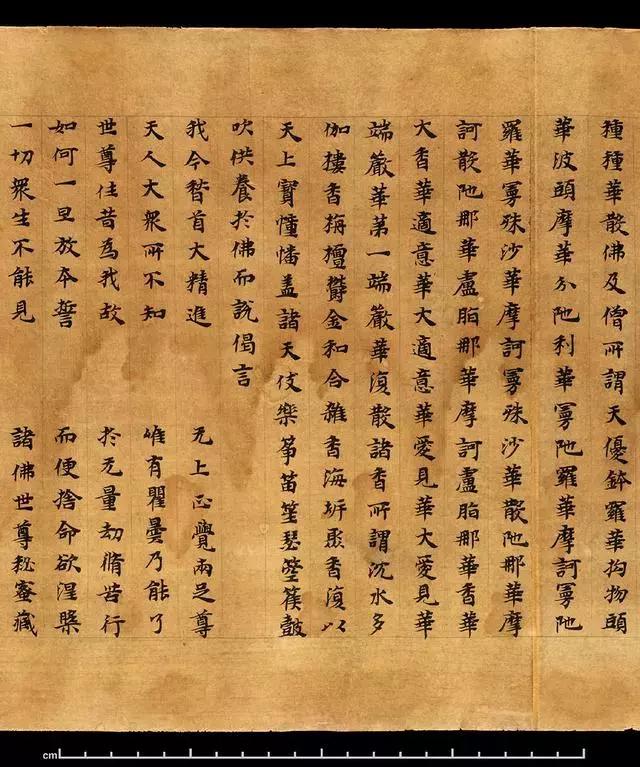 種種華散佛及僧所謂天優鉢羅華拘物頭
華波頭摩華分陁利華曼陁羅華摩訶曼陁
羅華曼殊沙華摩訶曼殊沙華散陁那華摩
訶散陁那華盧脂那華摩訶盧脂那華香華
大香華適意華大適意華愛見華大愛見華
端嚴華第一端嚴華復散諸香所謂沈水多
伽樓香栴檀欝金和合雜香海岸聚香復以
天上寶幢幡蓋諸天伎樂箏笛笙瑟箜篌鼓
吹供養於佛而說偈言
我今稽首大精進 无上正覺兩足尊
天人大衆所不知 唯有瞿曇乃能了
世尊往昔為我故 於无量劫脩苦行
如何一旦放本誓 而便捨命欲涅槃
一切衆生不能見 諸佛世尊秘蜜藏
cm